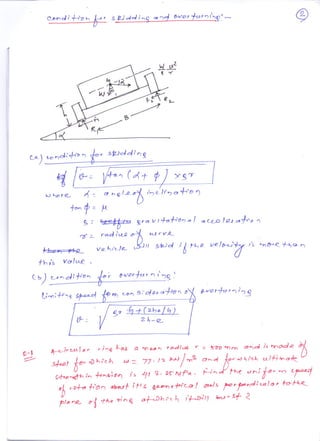 Condition for skidding and overturning:-
2
W v²
g r
h
B
R₁
R₂
α
(a) condition for skidding
v = √tan (α + φ) × gr
where α = angle of inclination
tan φ = μ
g = gravitational acceleration
r = radius of curve
vehicle will skid if the velocity is more than
this value.
(b) condition for overturning:
limiting speed from consideration of overturning
v = √gr
2h-e
A circular ring has a mean radius r = 500 mm and is made of
steel for which w = 77.12 kN/m³ and for which ultimate
strength in tension is 413.85 MPa. Find the uniform speed
of rotation about it's geometrical axis perpendicular to the
plane of the ring at which it will burst ?